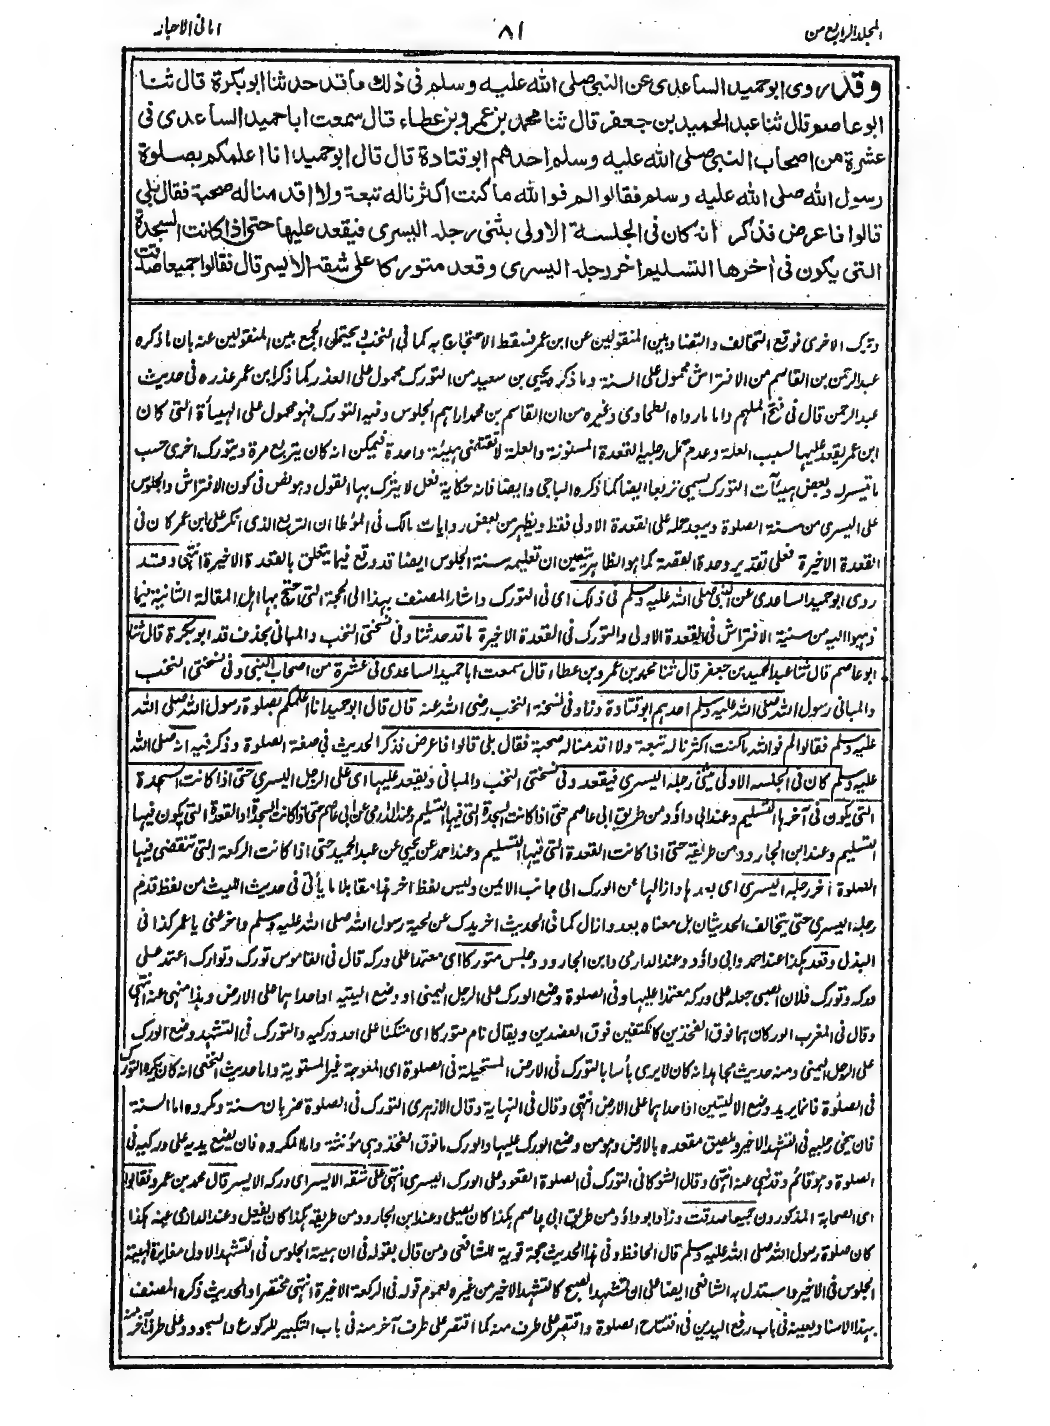 المجلد الرابع من
٨١
امانى الاحبار
وقد روى ابوحميد الساعدى عن النبى صلى الله عليه وسلم فى ذلك ما قد حدثنا ابوبكرة قال ثنا
ابوعاصم قال ثنا عبد الحميد بن جعفر قال ثنا محمد بن عمرو بن عطاء قال سمعت ابا حميد الساعدى فى
عشرة من اصحاب النبى صلى الله عليه وسلم احدهم ابوقتادة قال قال ابوحميد انا اعلمكم بصلوة
رسول الله صلى الله عليه وسلم فقالوا لم فوالله ما كنت اكثرنا له تبعة ولا اقدمنا له صحبة فقال بلى
قالوا فاعرض فذكر انه كان فى الجلسة الاولى يثنى رجله اليسرى فيقعد عليها حتى اذا كانت السجدة
التى يكون فى آخرها التسليم اخر رجله اليسرى وقعد متوركا على شقه الايسر قال فقالوا جميعا صدقت
وترك الاخرى فوقع التخالف والتضاد بين المنقولين عن ابن عمر فسقط الاحتجاج به كما فى النخب ويحتمل الجمع بين المنقولين عنه بان ما ذكره
عبد الرحمن بن القاسم من الافتراش محمول على السنة وما ذكره يحيى بن سعيد من التورك محمول على العذر كما ذكر ابن عمر عذره فى حديث
عبد الرحمن قال فى فتح الملهم واما ما رواه الطحاوى وغيره من ان القاسم بن محمد اراهم الجلوس وفيه التورك فهو محمول على الهيأة التى كان
ابن عمر يقعد عليها لسبب العلة وعدم حمل رجليه القعدة المسنونة والعلة لا تقتضى هيئة واحدة فيمكن انه كان يتربع مرة ويتورك اخرى حسب
ما تيسر له وبعض هيئات التورك يسمى تربعا ايضا كما ذكره الباجى وايضا فانه حكاية فعل لا يترك بها القول وهو نص فى كون الافتراش والجلوس
على اليسرى من سنة الصلوة ويبعد حمله على القعدة الاولى فقط ويظهر من بعض روايات مالك فى المؤطا ان التربع الذى انكر على ابن عمر كان فى
القعدة الاخيرة فعلى تقدير وحدة القصة كما هو الظاهر يتعين ان تعليمه سنة الجلوس ايضا قد وقع فيما يتعلق بالقعدة الاخيرة انتهى وقد
روى ابوحميد الساعدى عن النبى صلى الله عليه وسلم فى ذلك اى فى التورك واشار المصنف بهذا الى الحجة التى احتج بها اهل المقالة الثانية فيما
ذهبوا اليه من سنية الافتراش فى القعدة الاولى والتورك فى القعدة الاخيرة ما قد حدثنا وفى نسختى النخب والمبانى بحذف قد ابوبكرة قال ثنا
ابوعاصم قال ثنا عبد الحميد بن جعفر قال ثنا محمد بن عمرو بن عطاء قال سمعت ابا حميد الساعدى فى عشرة من اصحاب النبى وفى نسختى النخب
والمبانى رسول الله صلى الله عليه وسلم احدهم ابوقتادة وزاد فى نسخة النخب رضى الله عنه قال قال ابوحميد انا اعلمكم بصلوة رسول الله صلى الله
عليه وسلم فقالوا لم فوالله ما كنت اكثرنا له تبعة ولا اقدمنا له صحبة فقال بلى قالوا فاعرض فذكر الحديث فى صفة الصلوة وذكر فيه انه صلى الله
عليه وسلم كان فى الجلسة الاولى يثنى رجله اليسرى فيقعد وفى نسختى النخب والمبانى ويقعد عليها اى على الرجل اليسرى حتى اذا كانت السجدة
التى يكون فى آخرها التسليم وعند ابى داود من طريق ابى عاصم حتى اذا كانت السجدة التى فيها التسليم وعند الدارمى عن ابى عاصم حتى اذا كانت السجدة او القعدة التى يكون فيها
التسليم وعند ابن الجارود من طريقه حتى اذا كانت القعدة التى فيها التسليم وعند احمد عن يحيى عن عبد الحميد حتى اذا كانت الركعة التى تنقضى فيها
الصلوة اخر رجله اليسرى اى بعدها وازالها عن الورك الى جانب الايمن وليس لفظ اخر هنا مقابلا ما يأتى فى حديث الليث من لفظ قدم
رجله اليسرى حتى يتخالف الحديثان بل معناه بعد وازال كما فى الحديث اخر يدك عن لحية رسول الله صلى الله عليه وسلم واخر عنى يا عمر كذا فى
البذل وقعد هكذا عند احمد وابى داود وعند الدارمى وابن الجارود وجلس متوركا اى معتمدا على وركه قال فى القاموس تورك وتوارك اعتمد على
وركه وتورك فلان الصبى جعله على وركه معتمدا عليها وفى الصلوة وضع الورك على الرجل اليمنى او وضع اليتيه او احداهما على الارض وهذا منهى عنه انتهى
وقال فى المغرب الوركان هما فوق الفخذين كالكتفين فوق العضدين ويقال نام متوركا اى متكئا على احد وركيه والتورك فى التشهد وضع الورك
على الرجل اليمنى ومنه حديث مجاهد انه كان لا يرى بأسا بالتورك فى الارض المستحيلة فى الصلوة اى المعوجة غير المستوية واما حديث النخعى انه كان يكره التورك
فى الصلوة فانما يريد وضع الاليتين او احداهما على الارض انتهى وقال فى النهاية وقال الازهرى التورك فى الصلوة ضربان سنة ومكروه اما السنة
فان ينحى رجليه فى التشهد الاخير ويلصق مقعده بالارض وهو من وضع الورك عليها والورك ما فوق الفخذ وهى مؤنثة واما المكروه فان يضع يديه على وركيه فى
الصلوة وهو قائم وقد نهى عنه انتهى وقال الشوكانى التورك فى الصلوة القعود على الورك اليسرى انتهى على شقه الايسر اى وركه الايسر قال محمد بن عمرو فقالوا
اى الصحابة المذكورون جميعا صدقت وزاد ابوداود من طريق ابى عاصم هكذا كان يصلى وعند ابن الجارود من طريقه هكذا كان يفعل وعند الدارمى عنه هكذا
كان صلوة رسول الله صلى الله عليه وسلم قال الحافظ وفى هذا الحديث حجة قوية للشافعى ومن قال بقوله فى ان هيئة الجلوس فى التشهد الاول مغايرة لهيئة
الجلوس فى الاخير واستدل به الشافعى ايضا على ان تشهد الصبح كالتشهد الاخير من غيره لعموم قوله فى الركعة الاخيرة انتهى مختصرا والحديث ذكره المصنف
بهذا الاسناد بعينه فى باب رفع اليدين فى افتتاح الصلوة واقتصر على طرف منه كما اقتصر على طرف آخر منه فى باب التكبير للركوع والسجود وعلى طرف آخر منه